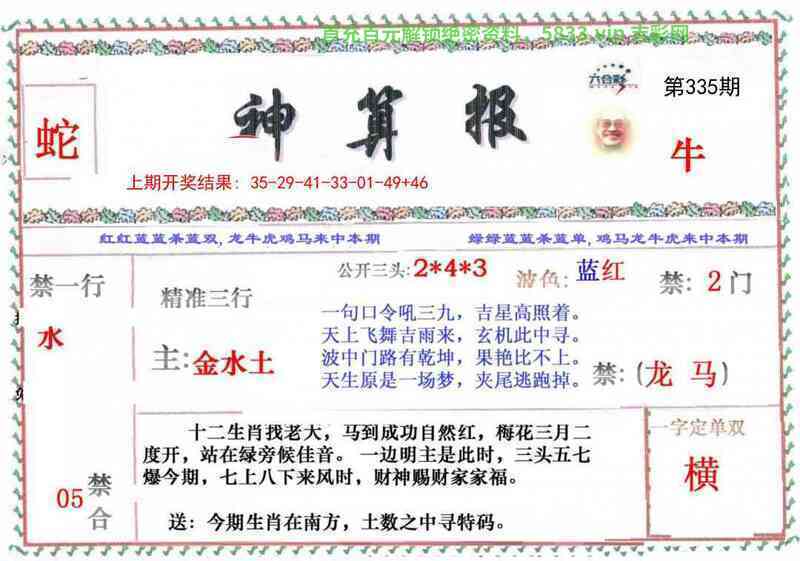 直充百元解锁绝密资料，5833.vip
六合彩
第335期
蛇
神算报
牛
上期开奖结果：35-29-41-33-01-49+46
红红蓝蓝杀蓝双,龙牛虎鸡马来中本期
绿绿蓝蓝杀蓝单,鸡马龙牛虎来中本期
禁一行
水
精准三行
主:金水土
公开三头:2*4*3
波色:蓝红
禁:2门
一句口令吼三九，吉星高照着。
天上飞舞吉雨来，玄机此中寻。
波中门路有乾坤，果艳比不上。
天生原是一场梦，夹尾逃跑掉。
禁:(龙 马)
05禁合
十二生肖找老大，马到成功自然红，梅花三月二
度开，站在绿旁候佳音。一边明主是此时，三头五七
爆今期，七上八下来风时，财神赐财家家福。
送：今期生肖在南方，土数之中寻特码。
一字定单双
横